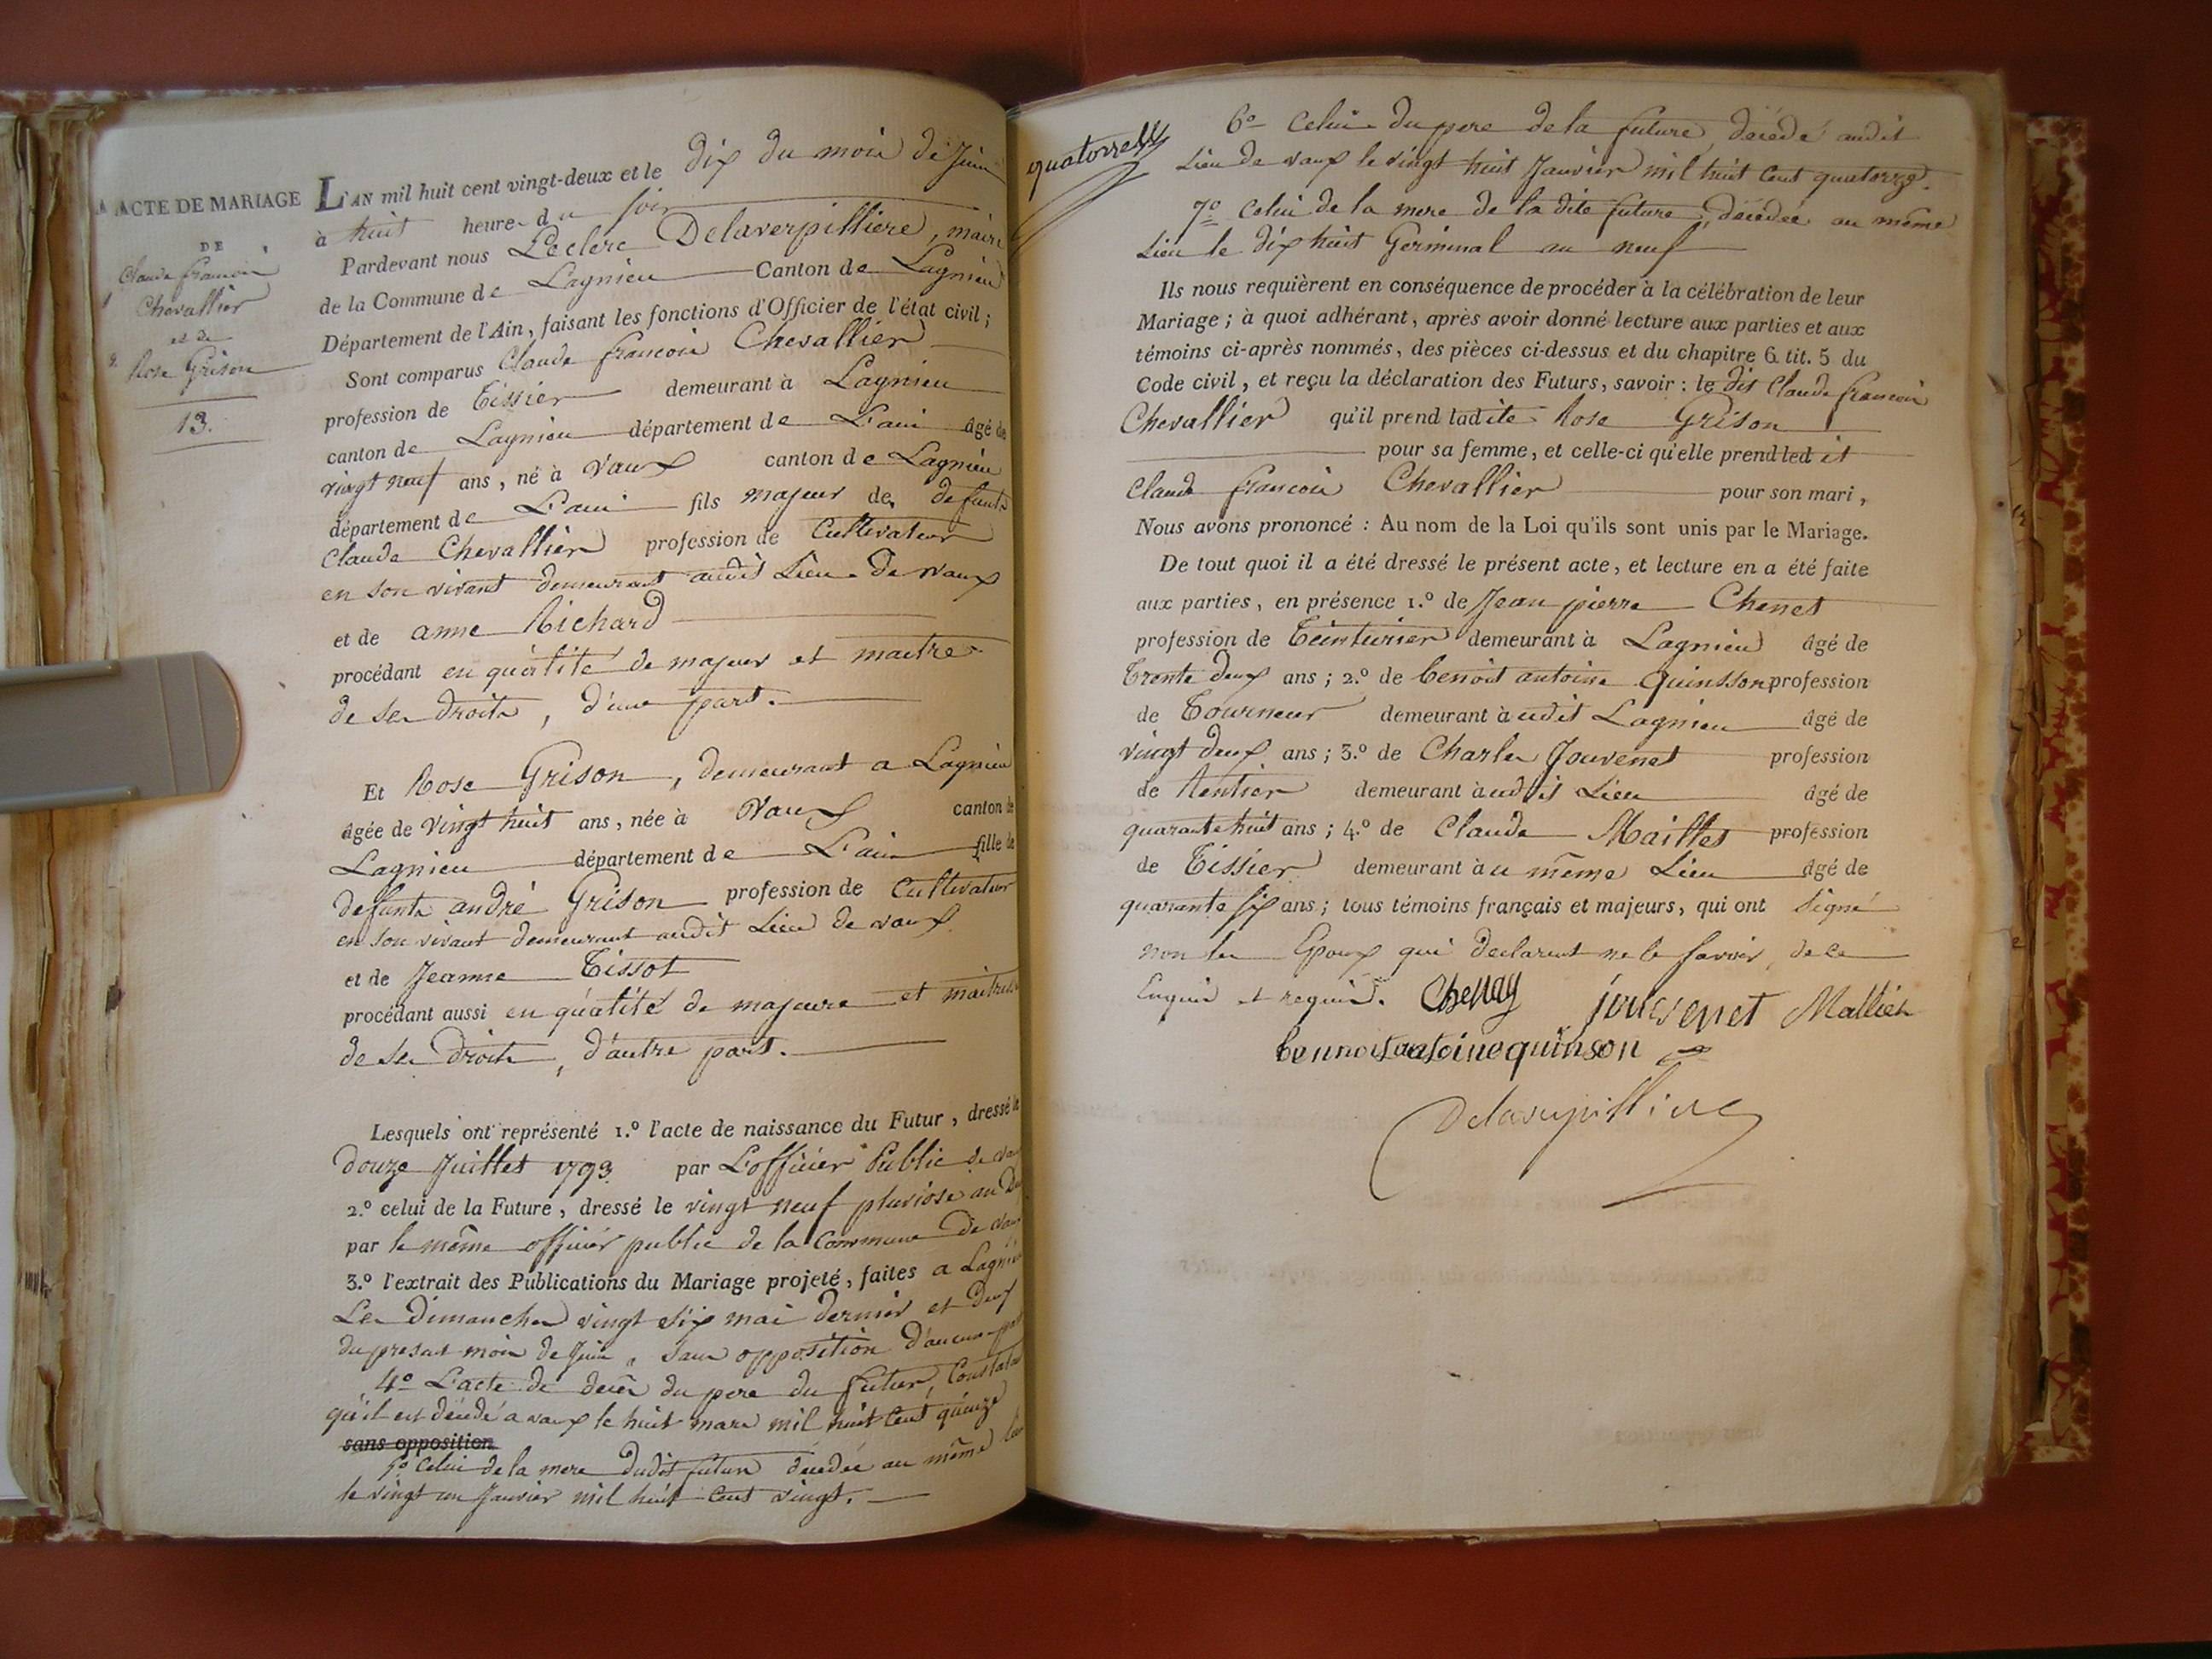 ACTE DE MARIAGE
DE
Claude francois
Chevallier
et de
Rose Grison
13.
L'AN mil huit cent vingt-deux et le dix du mois de Juin
à huit heures du soir
Pardevant nous Leclerc Delaverpilliere, maire
de la Commune de Lagnieu Canton de Lagnieu
Département de l'Ain, faisant les fonctions d'Officier de l'état civil;
Sont comparus Claude francois Chevallier
profession de Tissier demeurant à Lagnieu
canton de Lagnieu département de L'ain âgé de
vingt neuf ans, né à Vaux canton de Lagnieu
département de L'ain fils majeur de defunts
Claude Chevallier profession de Cultivateur
en son vivant demeurant audit Lieu de vaux
et de anne Richard
procédant en qualité de majeur et maitre
de ses droits, d'une part.
Et Rose Grison, demeurant a Lagnieu
âgée de vingt huit ans, née à Vaux canton de
Lagnieu département de L'ain fille de
defunts andré Grison profession de Cultivateur
en son vivant demeurant audit Lieu de vaux
et de Jeanne Tissot
procédant aussi en qualité de majeure et maitresse
de ses droits, d'autre part.
Lesquels ont représenté 1.º l'acte de naissance du Futur, dressé le
douze Juillet 1793 par L'officier Public de vaux
2.º celui de la Future, dressé le vingt neuf pluviose an Deux
par le même officier public de la Commune de vaux
3.º l'extrait des Publications du Mariage projeté, faites a Lagnieu
Les Dimanches vingt six mai dernier et deux
du present mois de Juin, sans opposition d'aucune part
4º L'acte de decès du pere du futur, Constatant
qu'il est décédé a vaux le huit mars mil huit Cent quinze
sans opposition
5º Celui de la mere dudit futur décédée au même lieu
le vingt un Janvier mil huit Cent vingt.
quatorze
6º Celui du pere de la future, décédé audit
Lieu de vaux le vingt huit Janvier mil huit Cent quatorze.
7º Celui de la mere de la dite future, décédée au même
Lieu le dix huit Germinal an neuf
Ils nous requièrent en conséquence de procéder à la célébration de leur
Mariage; à quoi adhérant, après avoir donné lecture aux parties et aux
témoins ci-après nommés, des pièces ci-dessus et du chapitre 6 tit. 5 du
Code civil, et reçu la déclaration des Futurs, savoir: le dit Claude francois
Chevallier qu'il prend ladite Rose Grison
pour sa femme, et celle-ci qu'elle prend ledit
Claude francois Chevallier pour son mari,
Nous avons prononcé: Au nom de la Loi qu'ils sont unis par le Mariage.
De tout quoi il a été dressé le présent acte, et lecture en a été faite
aux parties, en présence 1.º de Jean pierre Chenet
profession de Teinturier demeurant à Lagnieu âgé de
Trente deux ans; 2.º de benoit antoine Quinsson profession
de Tourneur demeurant à udit Lagnieu âgé de
vingt deux ans; 3.º de Charles Jouvenet profession
de Rentier demeurant à udit Lieu âgé de
quarante huit ans; 4.º de Claude Maillet profession
de Tissier demeurant à u même Lieu âgé de
quarante six ans; tous témoins français et majeurs, qui ont signé
non les Epoux qui declarent ne le savoir, de ce
Enquis et requis. jouvenet
bennoit antoine quinson
Delaverpilliere